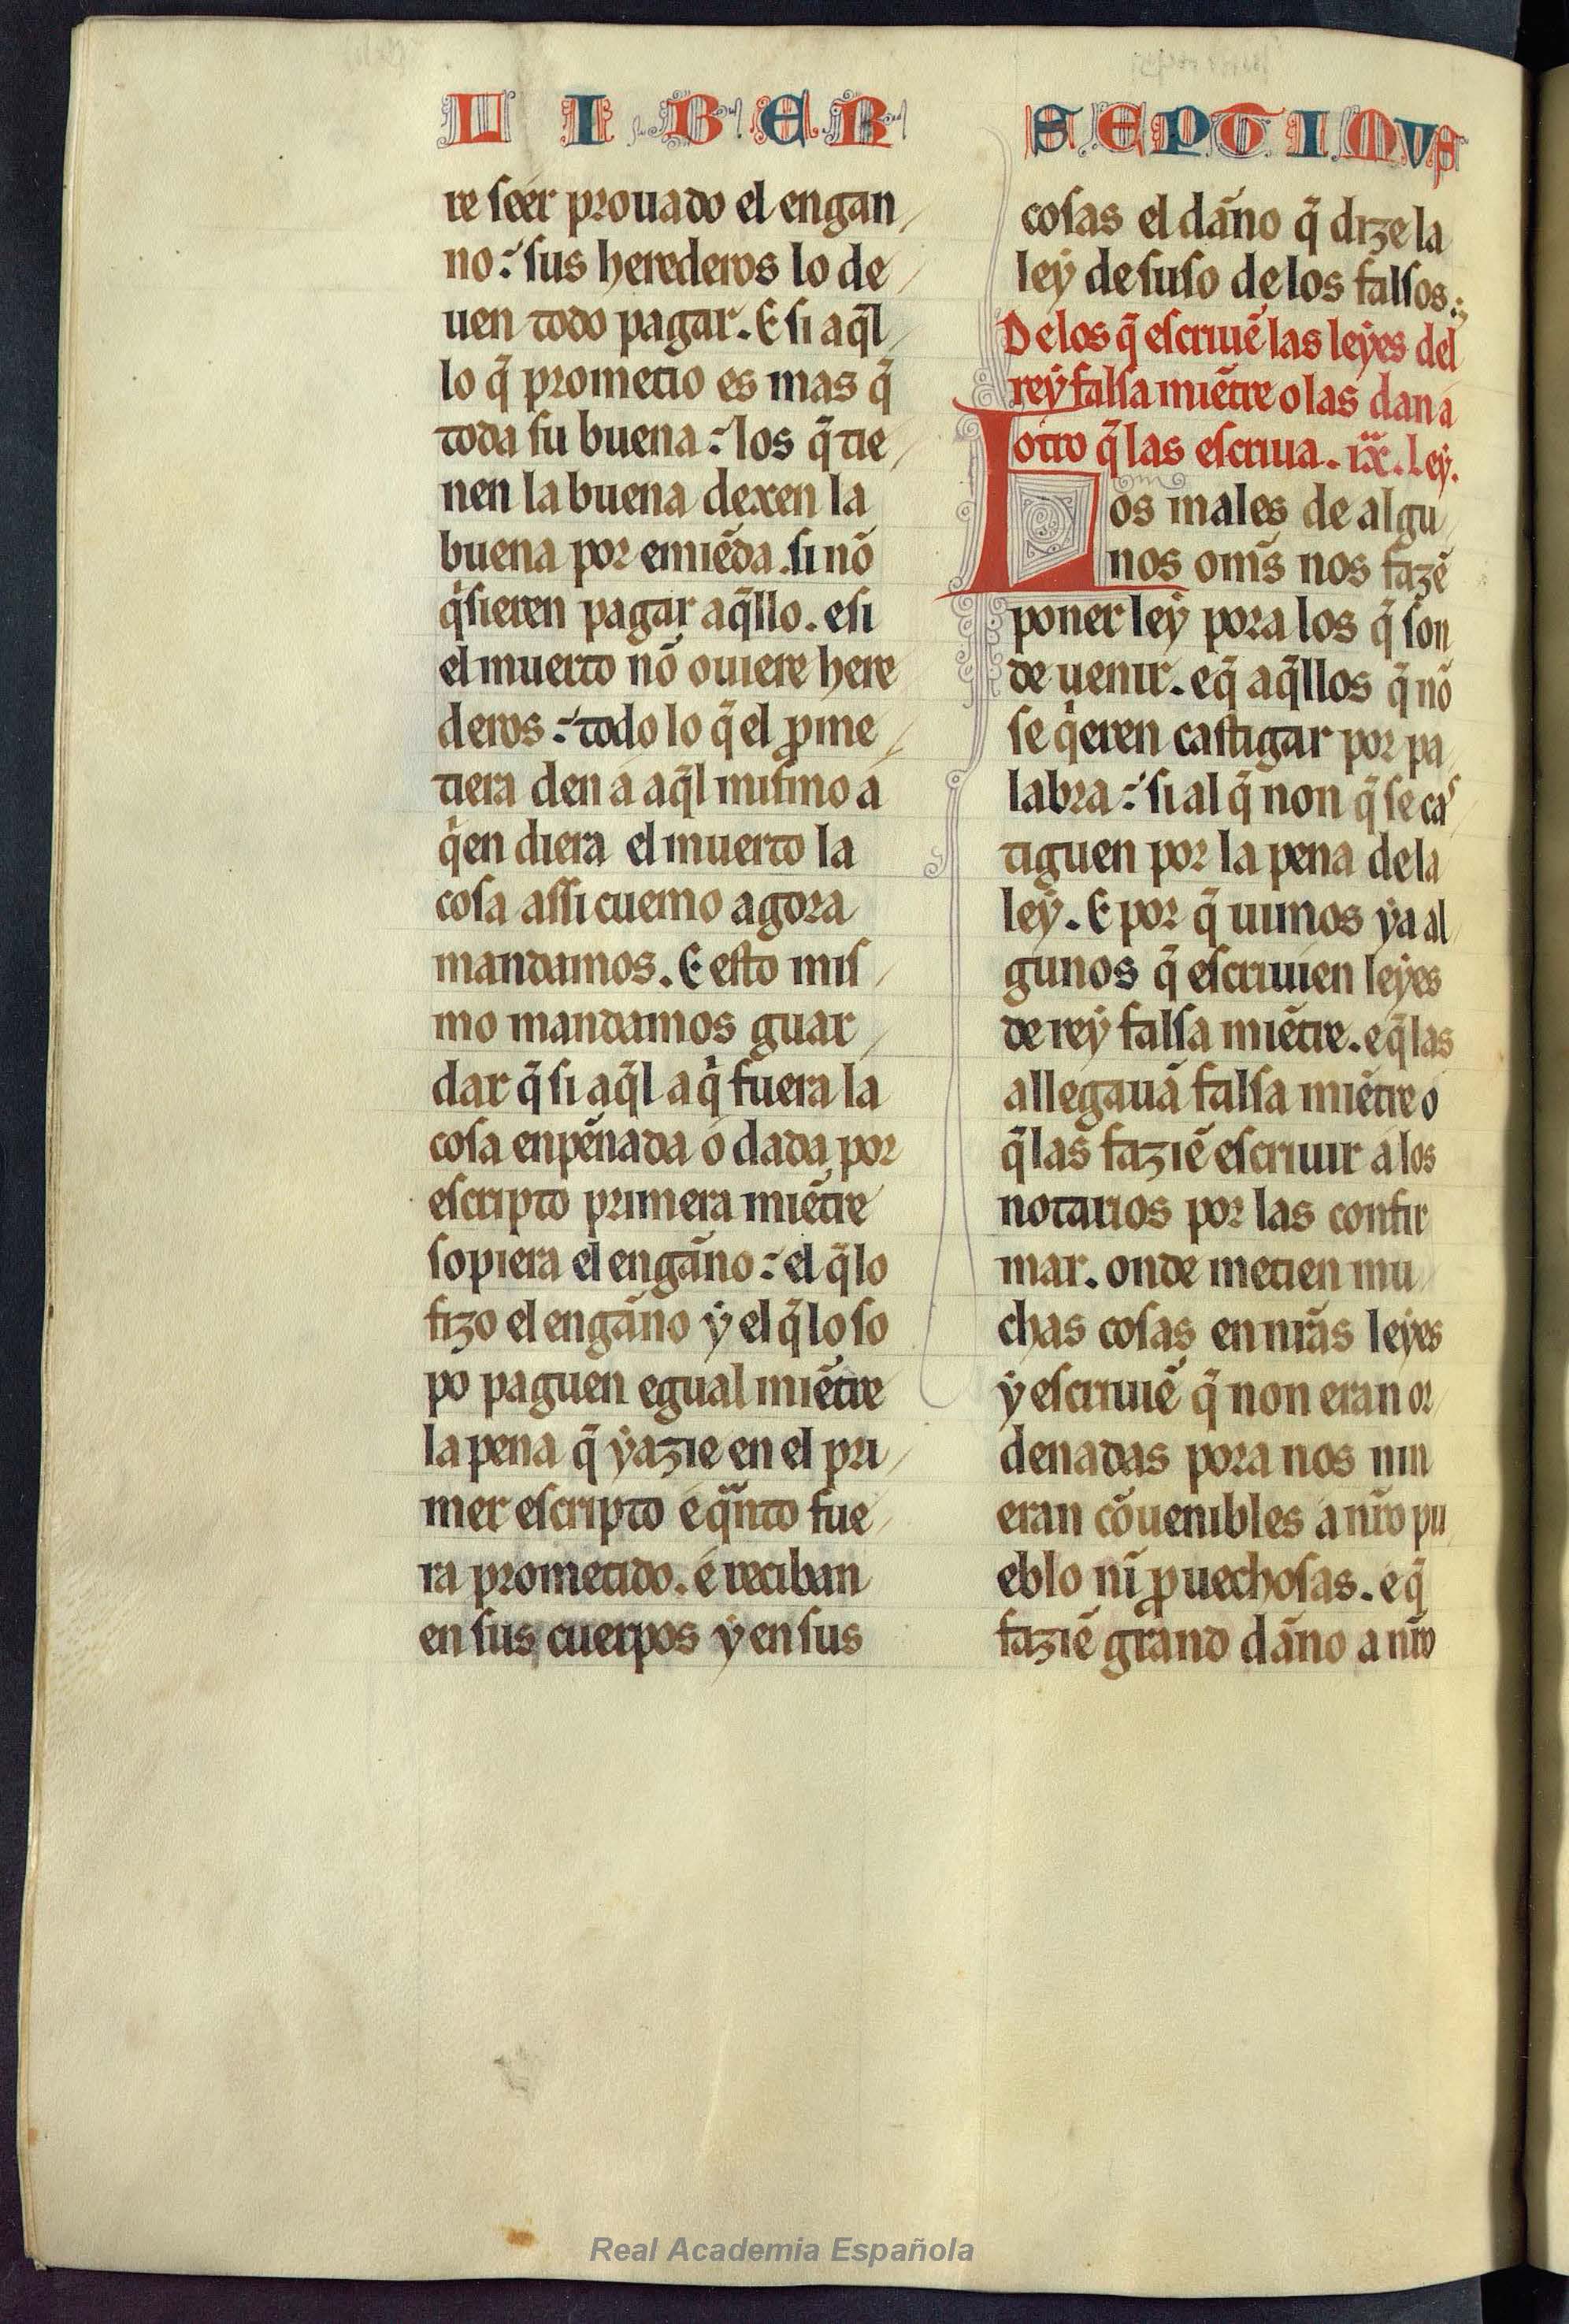 LIBER SEPTIMUS
re seer prouado el engan
no: sus herederos lo de
uen todo pagar. E si aq̄l
lo q̄ prometio es mas q̄
toda su buena: los q̄ tie
nen la buena dexen la
buena por emiẽda. si nõ
q̇sieren pagar aq̄llo. e si
el muerto nõ ouiere here
deros: todo lo q̄ el ꝓme
tiera den á aq̄l mismo á
q̇en diera el muerto la
cosa assi cuemo agora
mandamos. E esto mis
mo mandamos guar
dar q̄ si aq̄l a q̇ fuera la
cosa enpẽnada ó dada por
escripto primera miẽtre
sopiera el engãno: el q̄ lo
fizo el engãno ẏ el q̄ lo so
po paguen egual miẽtre
la pena q̄ ẏazie en el pri
mer escripto é q̃nto fue
ra prometido. é reciban
en sus cuerpos ẏ en sus
cosas el dãno q̄ dize la
leẏ de suso de los falsos.
De los q̄ escriuẽ las leẏes del
reẏ falsa miẽtre o las dan a
otro q̄ las escriua. ix. Leẏ.
Los males de algu
nos om̃s nos fazẽ
poner leẏ pora los q̄ son
de uenir. e q̄ aq̄llos q̄ nõ
se q̇eren castigar por pa
labra: si al q̄ non q̄ se cas
tiguen por la pena de la
leẏ. E por q̄ uimos ẏa al
gunos q̄ escriuien leẏes
de reẏ falsa miẽtre. e q̄ las
allegauã falsa miẽtre o
q̄ las faziẽ escriuir á los
notarios por las confir
mar. onde metien mu
chas cosas en nr̃as leẏes
ẏ escriuiẽ q̄ non eran or
denadas pora nos nin
eran cõuenibles a nr̃o pu
eblo nĩ ꝓuechosas. e q̄
faziẽ grand dãno a nr̃o
Real Academia Española